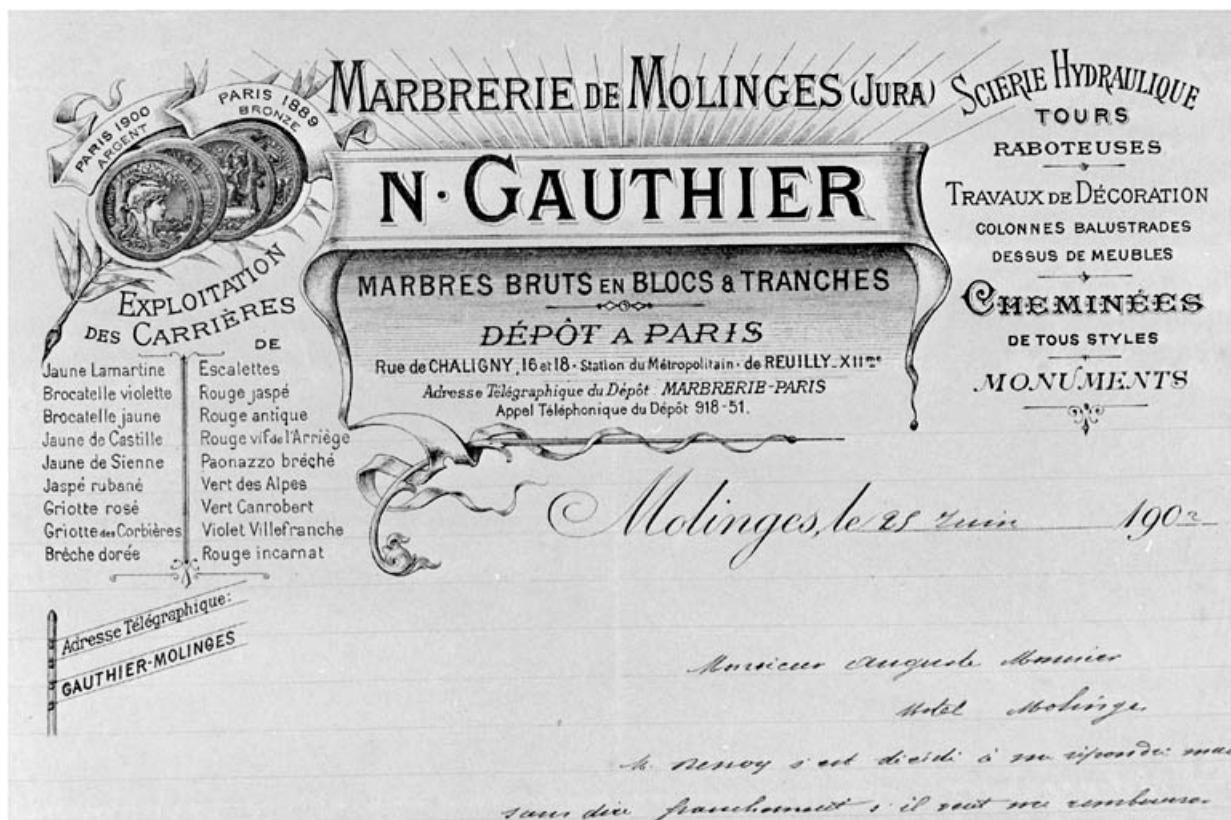 PARIS 1900
ARGENT
PARIS 1889
BRONZE
MARBRERIE DE MOLINGES (JURA)
N. GAUTHIER
MARBRES BRUTS EN BLOCS & TRANCHES
DÉPÔT A PARIS
Rue de CHALIGNY, 16 et 18 - Station du Métropolitain - de REUILLY_XIIme
Adresse Télégraphique du Dépôt MARBRERIE-PARIS
Appel Téléphonique du Dépôt 918-51.
SCIERIE HYDRAULIQUE
TOURS
RABOTEUSES
TRAVAUX DE DÉCORATION
COLONNES BALUSTRADES
DESSUS DE MEUBLES
CHEMINÉES
DE TOUS STYLES
MONUMENTS
EXPLOITATION
DES CARRIÈRES
DE
Jaune Lamartine
Brocatelle violette
Brocatelle jaune
Jaune de Castille
Jaune de Sienne
Jaspé rubané
Griotte rosé
Griotte des Corbières
Brêche dorée
Escalettes
Rouge jaspé
Rouge antique
Rouge vif de l'Arriège
Paonazzo bréché
Vert des Alpes
Vert Canrobert
Violet Villefranche
Rouge incarnat
Adresse Télégraphique:
GAUTHIER-MOLINGES
Molinges, le 25 Juin 1902
Monsieur Auguste Monnier
Hotel Molinges
M. s'est décidé à me répondre mais
sans dire franchement s'il veut me rembourser